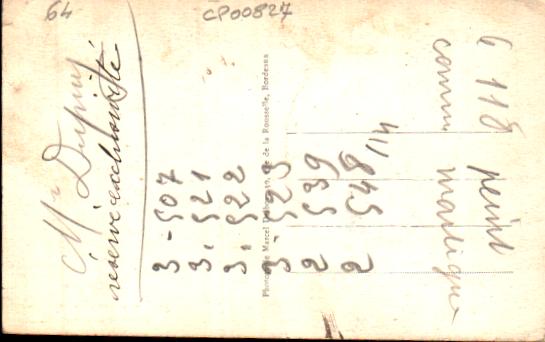 64
CP00827
Mr Dupin
réservé exclusivité
3-507
3.521
3.522
3.523
2 539
2 548 /14
Phototypie Marcel Delboy, de la Rousselle, Bordeaux
6 118 peint
comme